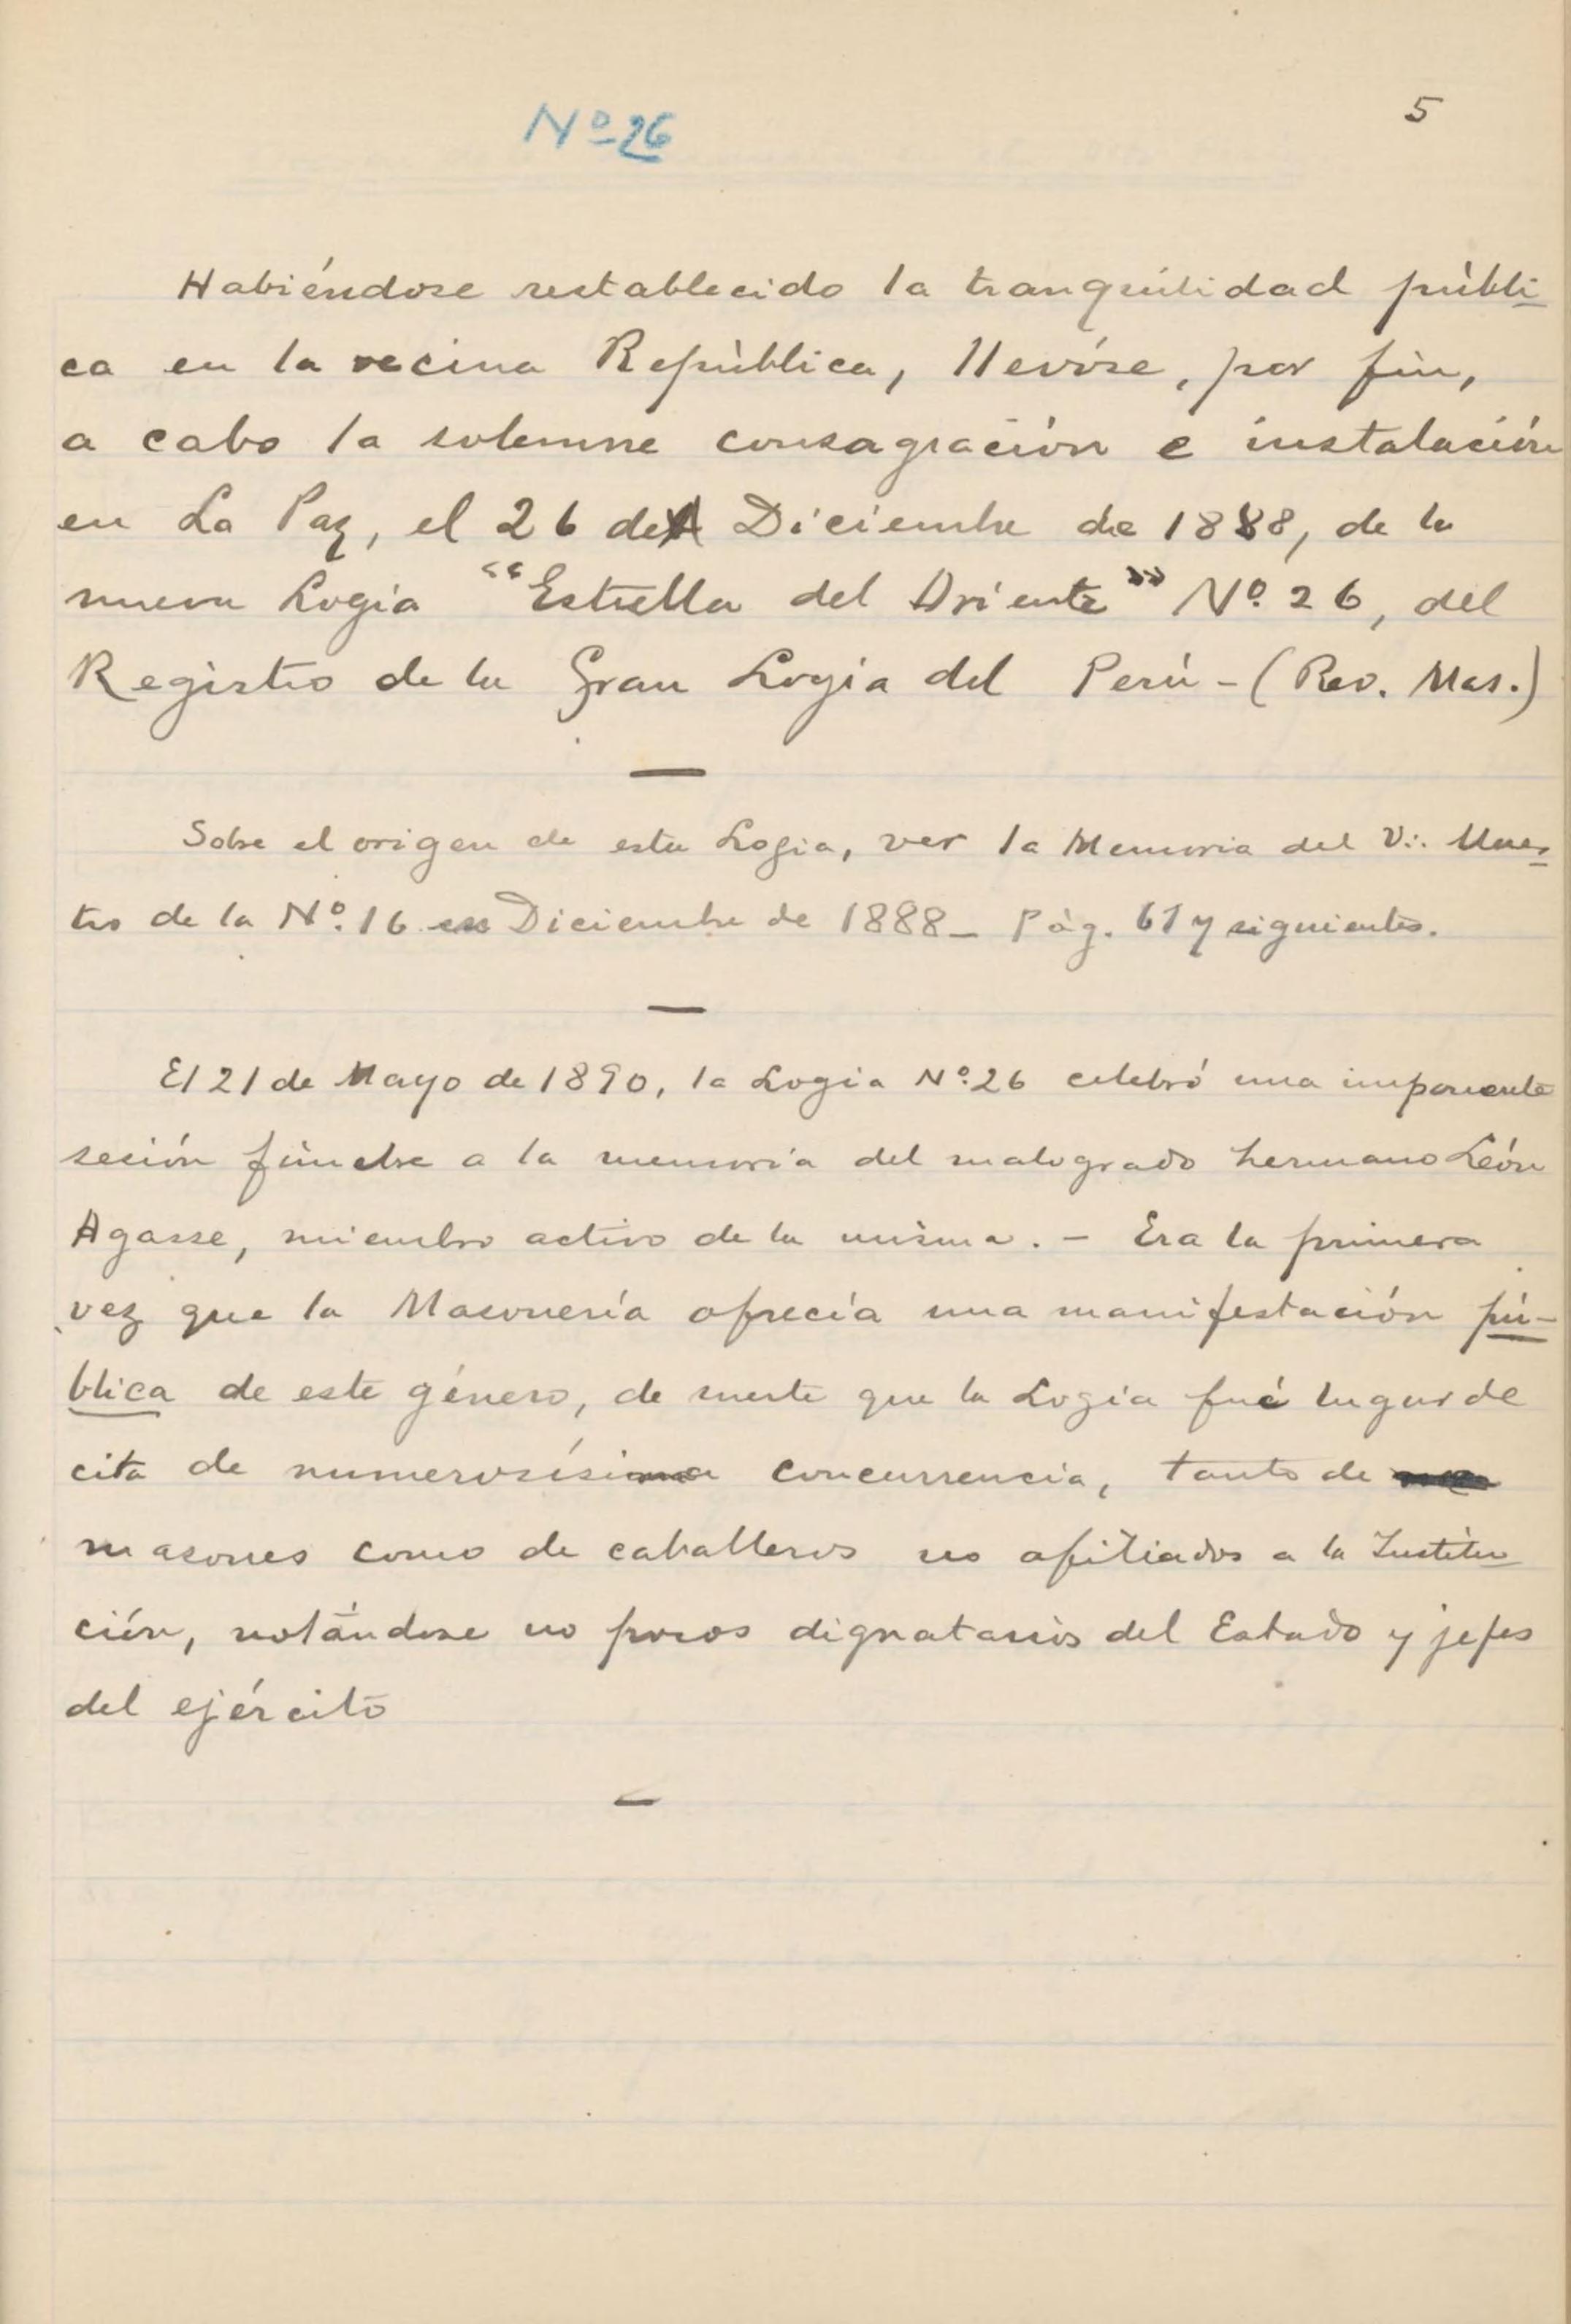 Nº 26
5
Habiéndose restablecido la tranquilidad públi-
ca en la vecina República, llevóse, por fin,
a cabo la solemne consagración e instalación
en La Paz, el 26 de Diciembre de 1888, de la
nueva Logia "Estrella del Oriente" Nº. 26, del
Registro de la Gran Logia del Perú - (Rev. Mas.)
Sobre el origen de esta Logia, ver la Memoria del V∴ Maes-
tro de la Nº. 16 en Diciembre de 1888 - Pág. 61 y siguientes.
El 21 de Mayo de 1890, la Logia Nº. 26 celebró una imponente
sesión fúnebre a la memoria del malogrado hermano León
Agasse, miembro activo de la misma. - Era la primera
vez que la Masonería ofrecía una manifestación pú-
blica de este género, de suerte que la Logia fué lugar de
cita de numerosísima concurrencia, tanto de
masones como de caballeros no afiliados a la Institu-
ción, notándose no pocos dignatarios del Estado y jefes
del ejército